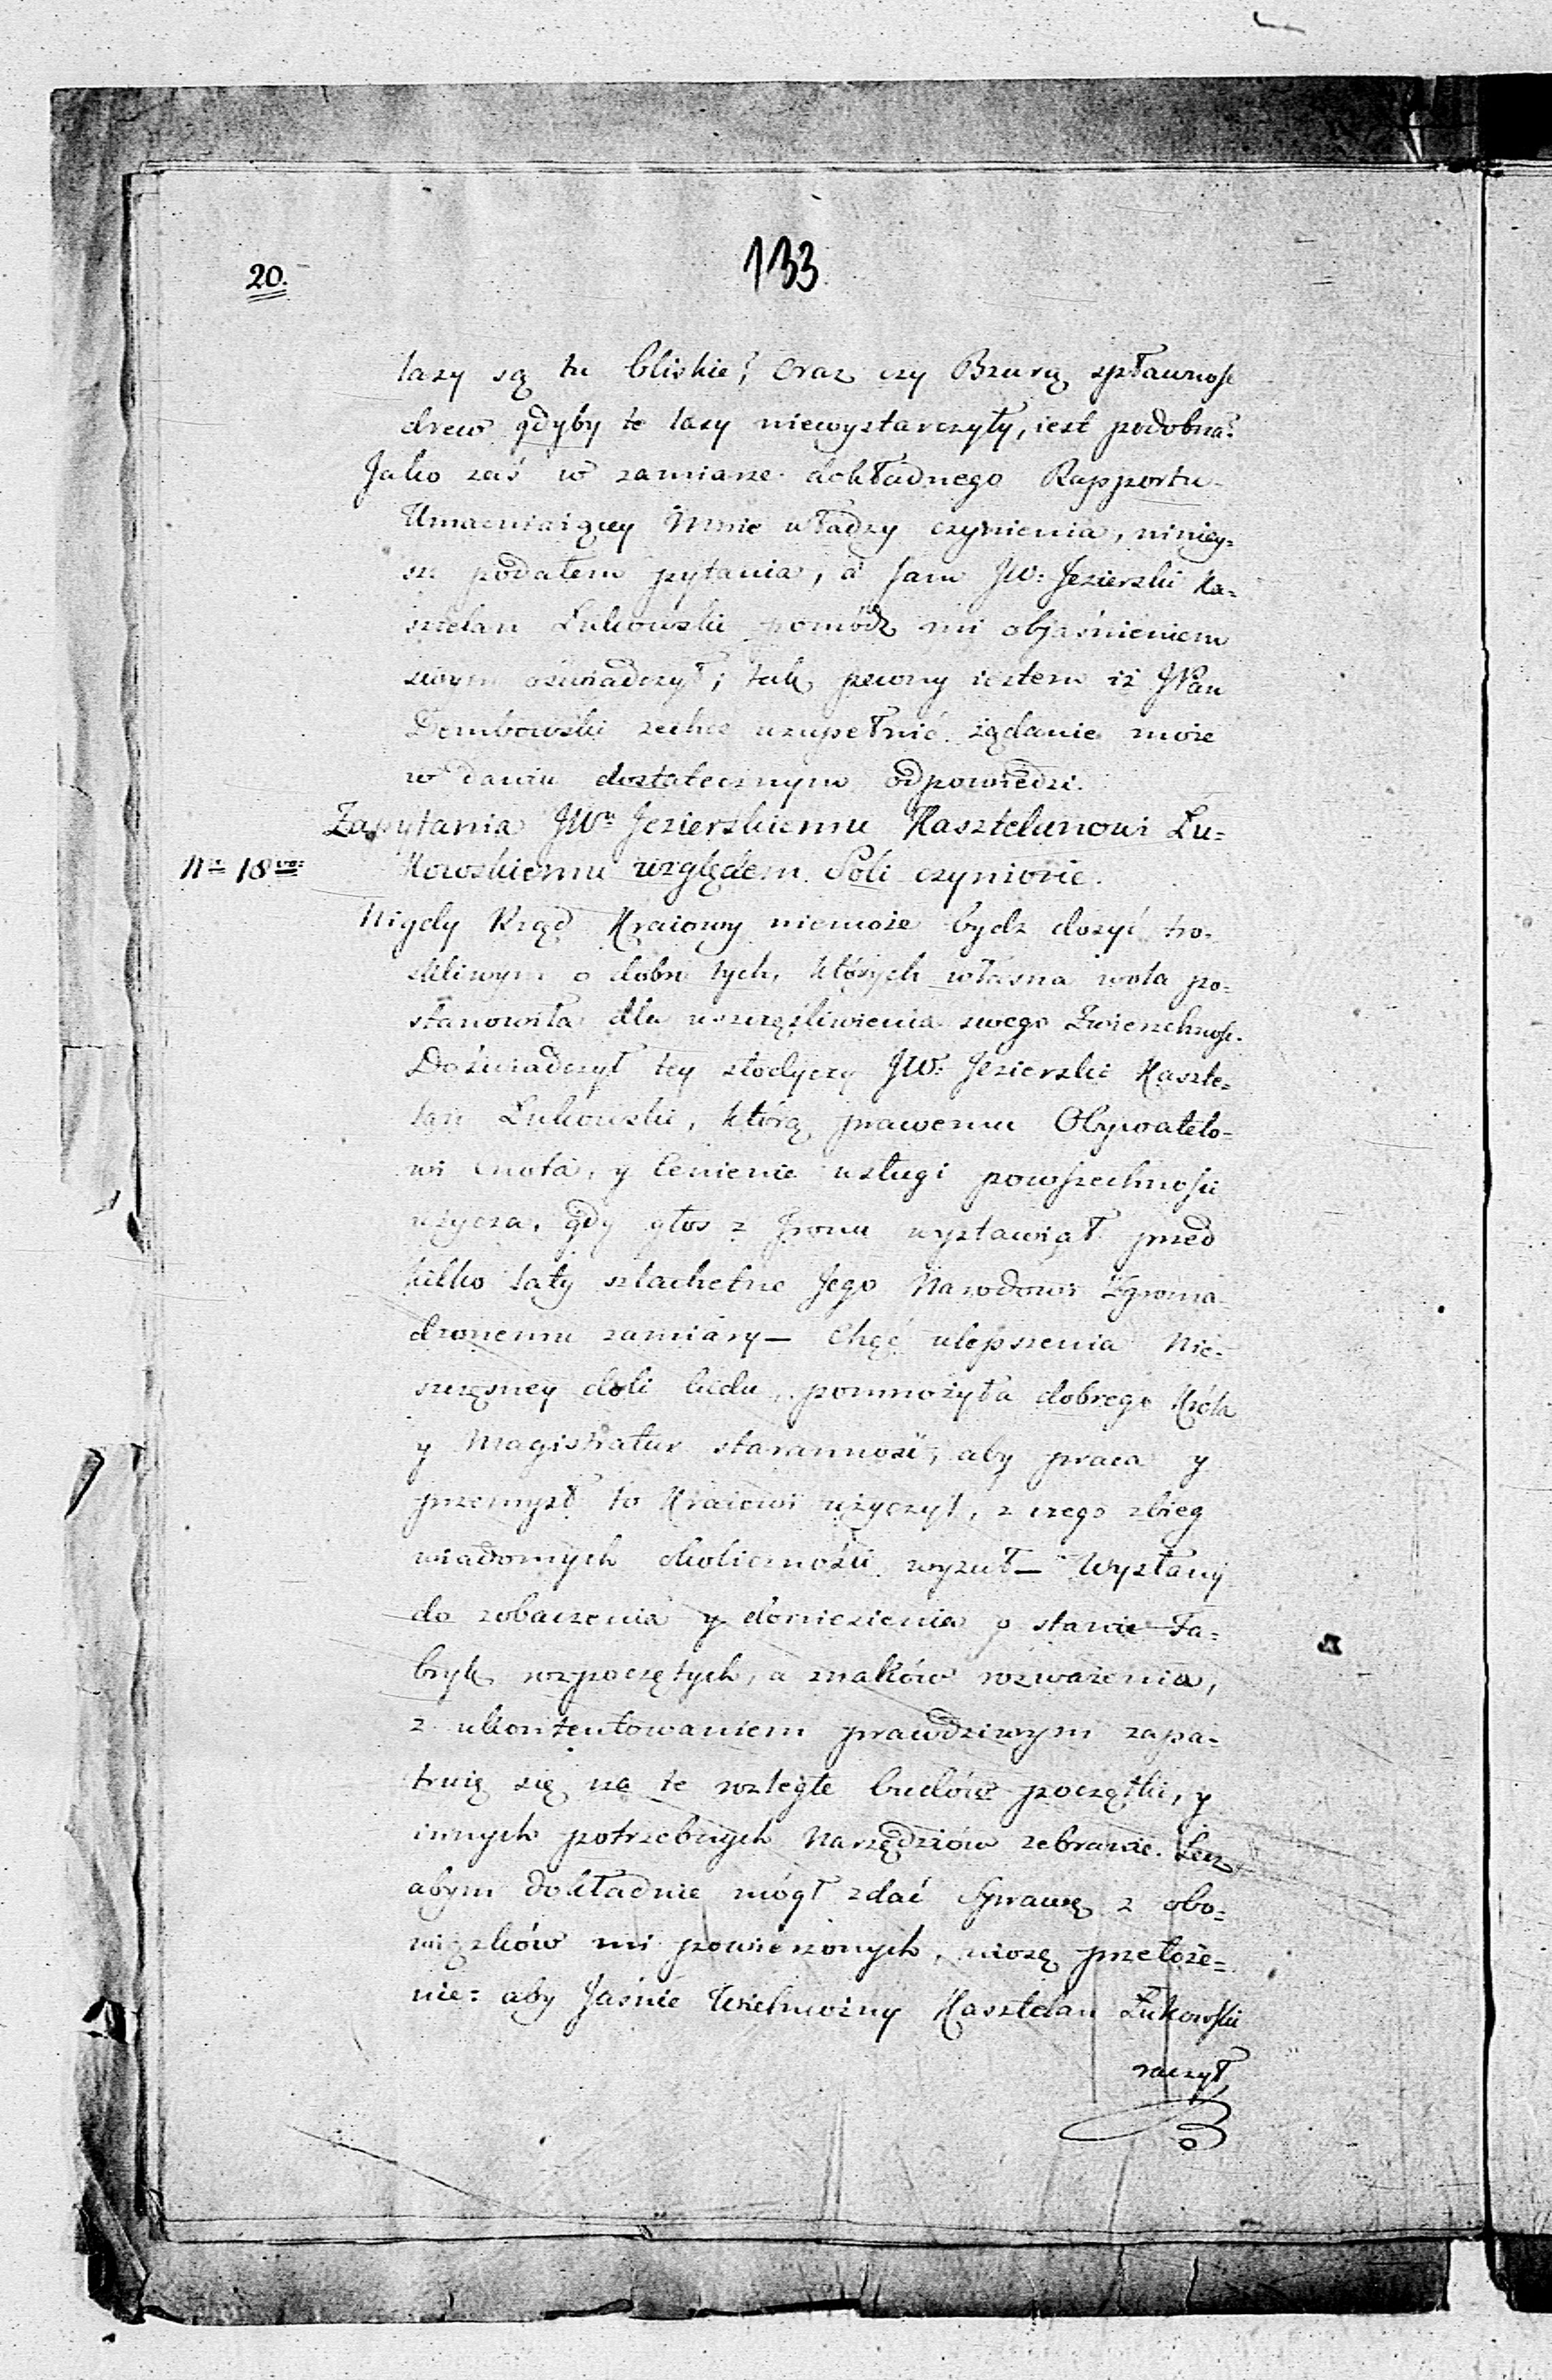 133
20.
lasy są tu bliskie? Oraz czy Bzurą spławność
drew gdyby te lasy niewystarczyły, iest podobna?
Jako zaś w zamiarze dokładnego Rapportu
Umacniaiącey Mnie władzy czynienia, niniey=
sze podałem pytania, a sam JW: Jezierski Ka=
sztelan Łukowski pomódz mi objaśnieniem
swym oświadczył; tak pewny iestem iż JPan
Dembowski zechce uzupełnić żądanie moie
w daniu dostatecznym odpowiedzi.
Zapytania JWu Jezierskiemu Kasztelanowi Łu=
Nro 18vo: kowskiemu względem Soli czynione.
Nigdy Rząd Kraiowy niemoże bydz dosyć tro=
skliwym o dobro tych, których własna wola po=
stanowiła dla uszczęśliwienia swego Zwierzchność.
Doświadczył tey słodyczy JW: Jezierski Kaszte=
lan Łukowski, którą prawemu Obywatelo=
wi Cnota, y Cenienie usługi powszechności
użycza, gdy głos z Tronu wystawiał przed
kilko laty szlachetne Jego Narodowi Zgroma=
dzonemu zamiary — Chęć ulepszenia Nie=
szczęsney doli ludu, pomnożyła dobrego Króla
y Magistratur staranność, aby praca y
przemysł to Kraiowi użyczył, z czego zbieg
wiadomych okoliczności wyzuł — Wysłany
do zobaczenia y doniesienia o stanie Fa=
bryk rozpoczętych, a znaków rozważenia,
z ukontentowaniem prawdziwym zapa=
truię się na te rozległe budów początki, y
innych potrzebnych Narzędziów zebranie. Lecz
abym dokładnie mógł zdać Sprawę z obo=
wiązków mi powierzonych, niosę przełoże=
nie: aby Jaśnie Wielmożny Kasztelan Łukowski
raczył